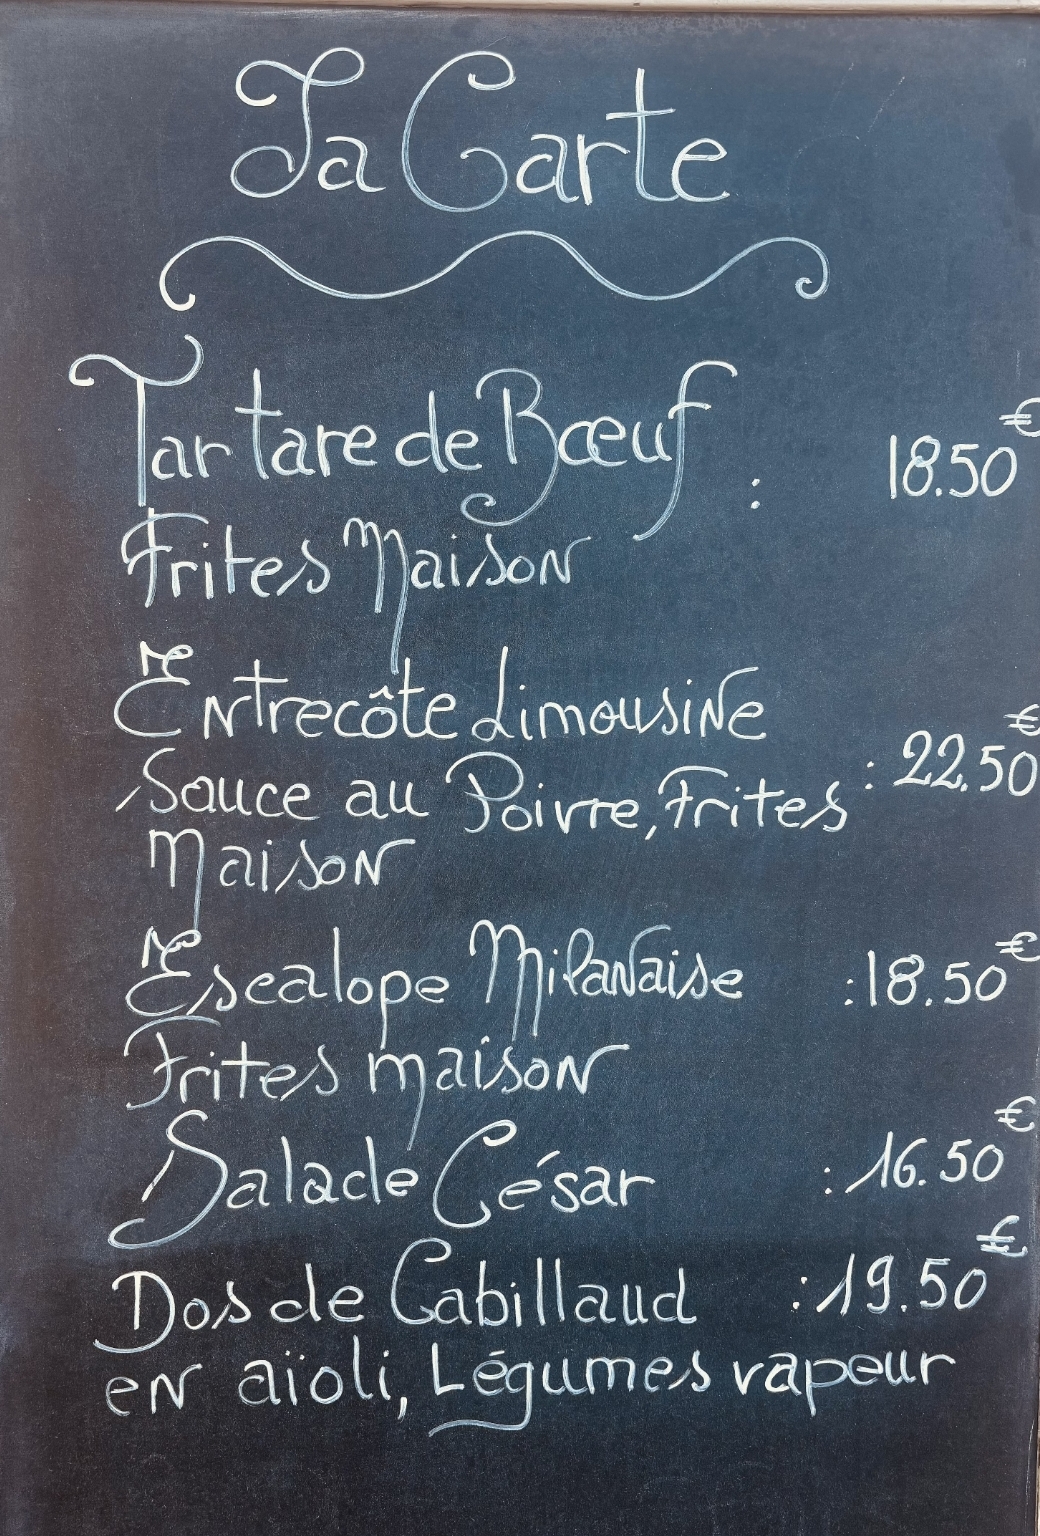 La Carte
Tartare de Bœuf : 18.50€
Frites Maison
Entrecôte Limousine
Sauce au Poivre, Frites : 22.50€
Maison
Escalope Milanaise : 18.50€
Frites maison
Salade César : 16.50€
Dos de Cabillaud : 19.50€
en aïoli, Légumes vapeur